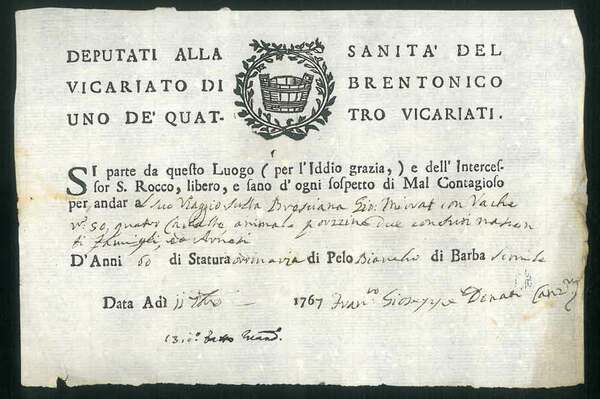 DEPUTATI ALLA SANITA' DEL
VICARIATO DI BRENTONICO
UNO DE' QUAT- TRO VICARIATI.
SI parte da questo Luogo ( per l'Iddio grazia, ) e dell' Interces-
sor S. Rocco, libero, e sano d' ogni sospetto di Mal Contagioso
per andar a suo Viaggio sulla Bresciana Gio: con Vache
n° 50, quatro Cavalle, animale porzine due
D'Anni 60 di Statura ordinaria di Pelo Biancho di Barba simile
Data Adì 1767 Fran.co Gioseppe Donati Canz.